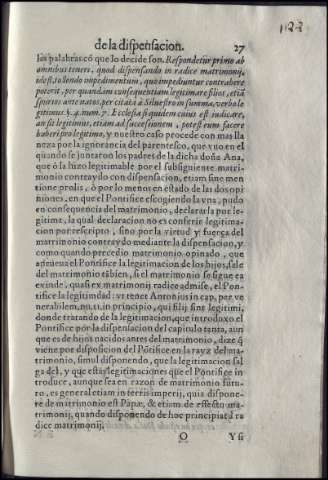 de la dispensacion. 27
las palabras cõ que lo decide son. Respondetur primo ab
omnibus teneri, quod dispensando in radice matrimonij,
idest, tollendo impedimentum, quo impediuntur contrahere
poterit, per quandam consequentiam legitimare filios, etiã
spurios ante natos, per citata à Siluestro in summa, verbo le
gitimus §. 4. num. 7. Ecclesia si quidem cuius est iudicare,
an sit legitimus, etiam ad successionem, potest eum facere
haberi pro legitimo, y nuestro caso procede con mas lla
neza por la ignorancia del parentesco, que vuo en el
quando se juntaron los padres de la dicha doña Ana,
que ò la hizo legitimable por el subsiguiente matri-
monio contraydo con dispensacion, etiam sine men
tione prolis, ò por lo menos en estado de las dos opi
niones, en que el Pontifice escogiendo la vna, pudo
en consequencia del matrimonio, declararla por le-
gitima, la qual declaracion no es conferir legitima-
cion por rescripto, sino por la virtud y fuerça del
matrimonio contraydo mediante la dispensacion, y
como quando precedio matrimonio opinado, que
afiença el Pontifice la legitimacion de los hijos, sale
del matrimonio tãbien, si el matrimonio se sigue ex
exinde, quasi ex matrimonij radice admisse, el Pon-
tifice la legitimidad: vt tenet Antonius in cap. per ve
nerabilem, nu. 11. in principio, qui filij sint legitimi,
donde tratando de la legitimacion, que introduxo el
Pontifice por la dispensacion del capitulo tanta, aun
que es de hijos nacidos antes del matrimonio, dize q̃
viene por disposicion del Põtifice en la rayz del ma-
trimonio, simul disponendo, que la legitimacion sal
ga del, y que estas legitimaciones que el Pontifice in
troduce, aunque sea en razon de matrimonio futu-
ro, es general etiam in terris imperij, quia dispone-
re de matrimonio est Papæ, & etiam de effectu ma-
trimonij, quando disponendo de hoc principiatd ra
dice matrimonij.
O Ysi